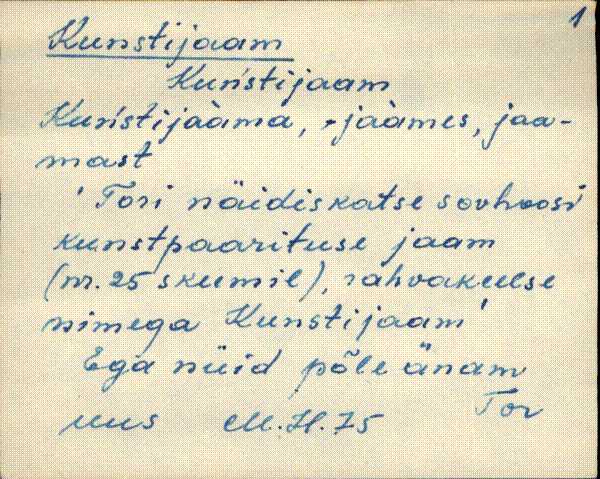 1
Kunstijaam
Kuństijaam
Kuństijaàma, -jaàmes, jaa-
mast
' Tori näidiskatse sovhoosi
kunstpaarituse jaam
(nr. 25 skeemil), rahvakeelse
nimega Kunstijaam'
Ega nüid põle änam
Tor
uus M.H. 75